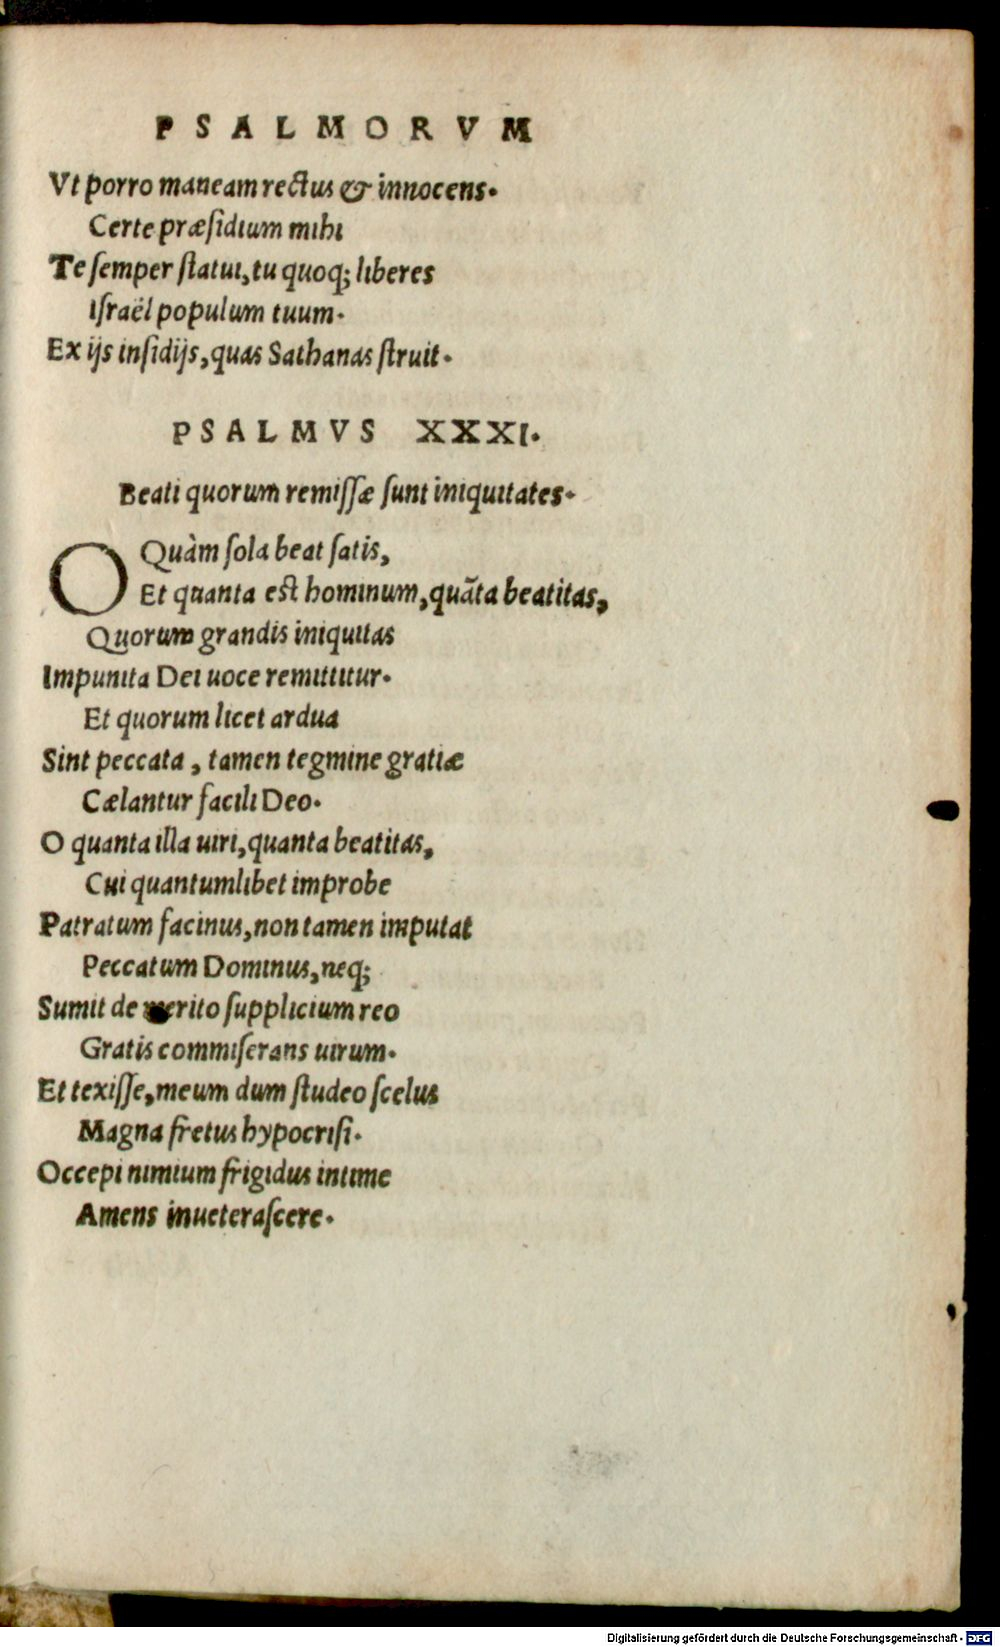 PSALMORVM
Vt porro maneam rectus & innocens.
Certe præſidium mihi
Te ſemper ſtatui, tu quoq; liberes
Iſraël populum tuum.
Ex ijs inſidijs, quas Sathanas ſtruit.
PSALMVS XXXI.
Beati quorum remiſſæ ſunt iniquitates.
O Quàm ſola beat ſatis,
Et quanta eſt hominum, quãta beatitas,
Quorum grandis iniquitas
Impunita Dei uoce remittitur.
Et quorum licet ardua
Sint peccata, tamen tegmine gratiæ
Cælantur facili Deo.
O quanta illa uiri, quanta beatitas,
Cui quantumlibet improbe
Patratum facinus, non tamen imputat
Peccatum Dominus, neq;
Sumit de merito ſupplicium reo
Gratis commiſerans uirum.
Et texiſſe, meum dum ſtudeo ſcelus
Magna fretus hypocriſi.
Occepi nimium frigidus intime
Amens inueteraſcere.
Digitalisierung gefördert durch die Deutsche Forschungsgemeinschaft - DFG